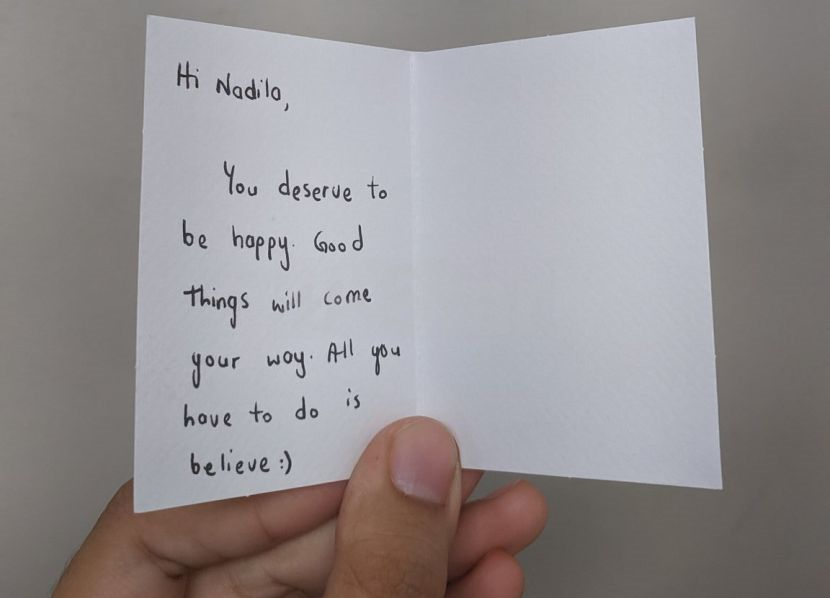 Hi Nadila,
You deserve to
be happy. Good
things will come
your way. All you
have to do is
believe :)